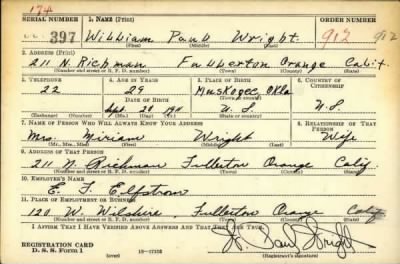 174
SERIAL NUMBER 1. NAME (Print)
397 William Paul Wright 912 912
(First) (Middle) (Last)
2. ADDRESS (Print)
211 N. Richman Fullerton Orange Calif.
(Number and street or R. F. D. number) (Town) (County) (State)
3. TELEPHONE 4. AGE IN YEARS 5. PLACE OF BIRTH 6. COUNTRY OF CITIZENSHIP
22 29 Muskogee Okla
DATE OF BIRTH
Sept 28 1911 U.S. U.S.
7. NAME OF PERSON WHO WILL ALWAYS KNOW YOUR ADDRESS 8. RELATIONSHIP OF THAT PERSON
Mrs. Miriam Wright Wife
(Mr., Mrs., Miss) (First) (Middle) (Last)
9. ADDRESS OF THAT PERSON
211 N. Richman Fullerton Orange Calif
(Number and street or R. F. D. number) (Town) (County) (State)
10. EMPLOYER'S NAME
E. F. Elfstrom
11. PLACE OF EMPLOYMENT OR BUSINESS
120 W. Wilshire, Fullerton Orange Calif
(Number and street or R. F. D. number) (Town) (County) (State)
I AFFIRM THAT I HAVE VERIFIED ABOVE ANSWERS AND THAT THEY ARE TRUE.
W. Paul Wright
REGISTRATION CARD
D. S. S. FORM 1 (over) (Registrant's signature)